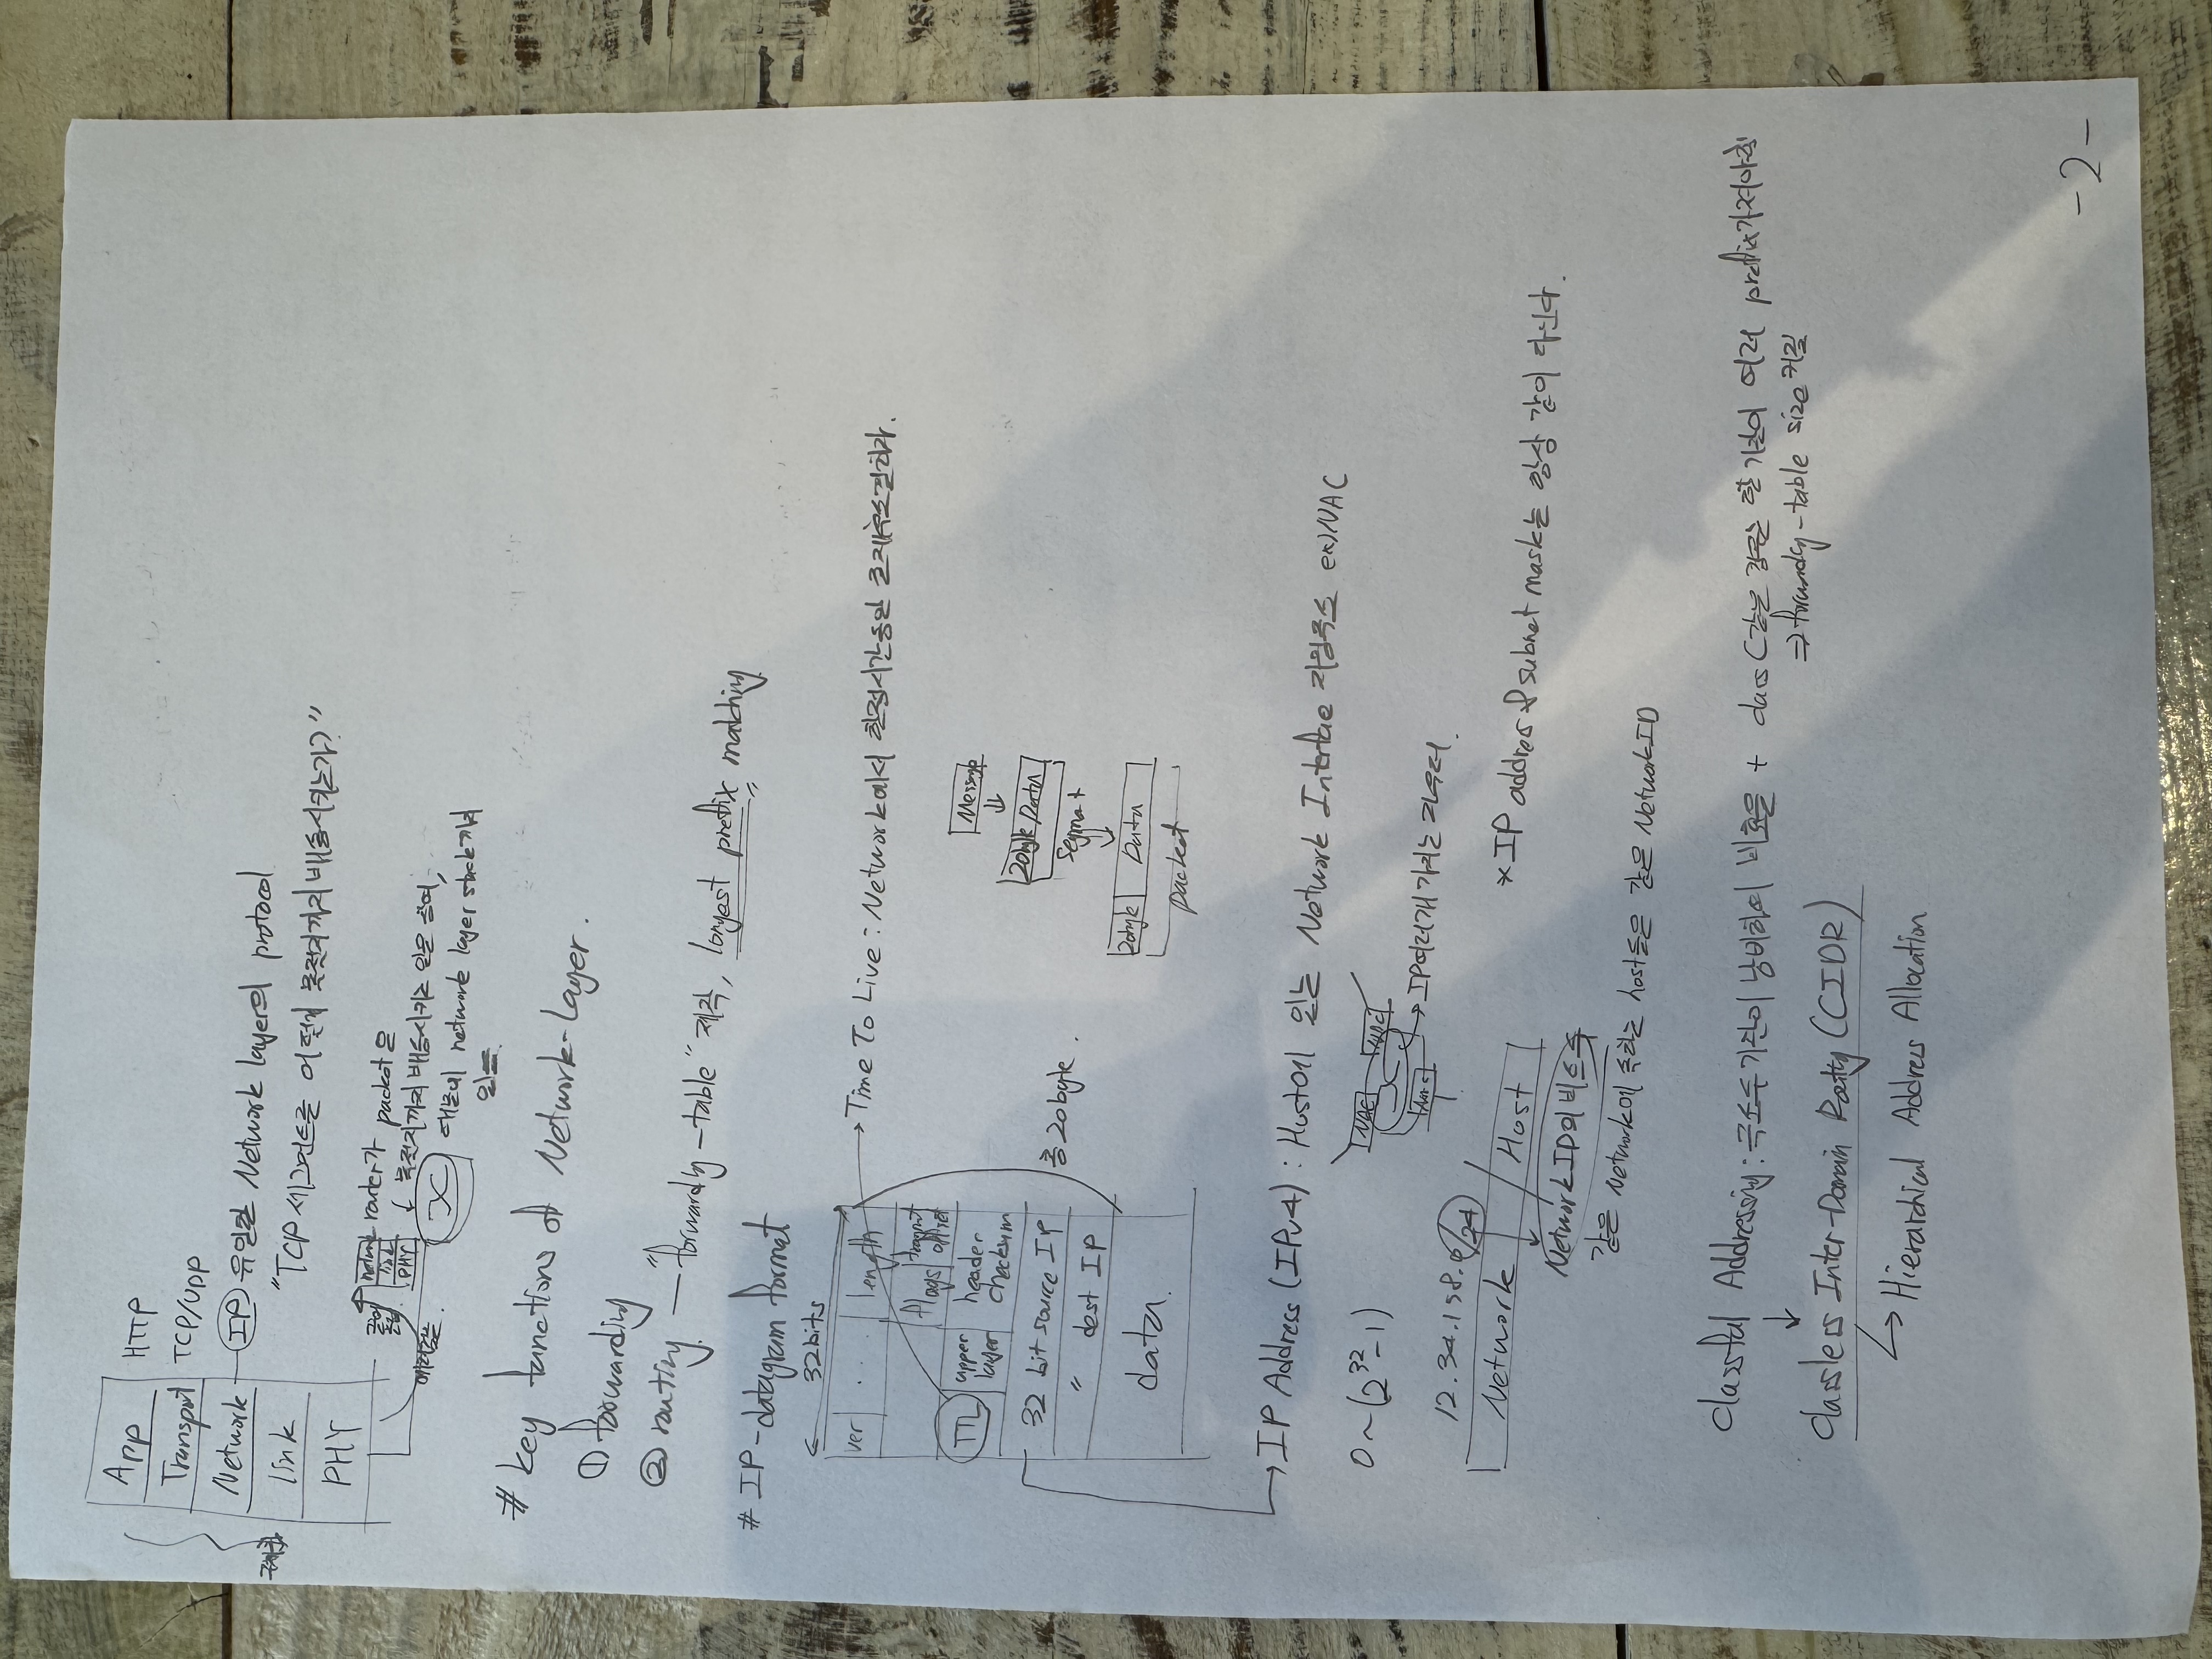 App HTTP
Transport TCP/UDP
Network IP 유일한 Network layer의 protocol
link "TCP 세그먼트를 어떻게 목적지까지 배송시키는가?"
PHY
link router가 packet을
PHY 목적지까지 배송시키는 일을 하며,
때문에 network layer stack까지
있음.
# key functions of Network-Layer.
① forwarding
② routing — "forwarding-table" 제작, longest prefix matching"
# IP-datagram format
32bits
ver .. length → Time To Live : Network에서
flags
TTL upper layer header checksum
32 bit source IP
〃 dest IP
총 20byte.
data.
Message
20byte Data
Segment
20byte Data
packet
→ IP Address (IPv4) : Host에 있는 Network Interfae 지칭주소 ex) NAC
0 ~ (2^32 - 1)
NAC NAC
→ IP여러개 가지는 라우터.
12.34.158.0/24
Network Host
* IP address & subnet mask는 항상 같이 다닌다.
Network ID의 비트 수
같은 Network에 속하는 host들은 같은 NetworkID
Classful Addressing : 극소수 기관이 낭비하여 비효율 + class C같은 경우는 한 기관이 여러 prefix가져야함
⇒ forwarding-table size 커짐
↓
Classless Inter-Domain Routing (CIDR)
↳ Hierarchical Address Allocation
-2-